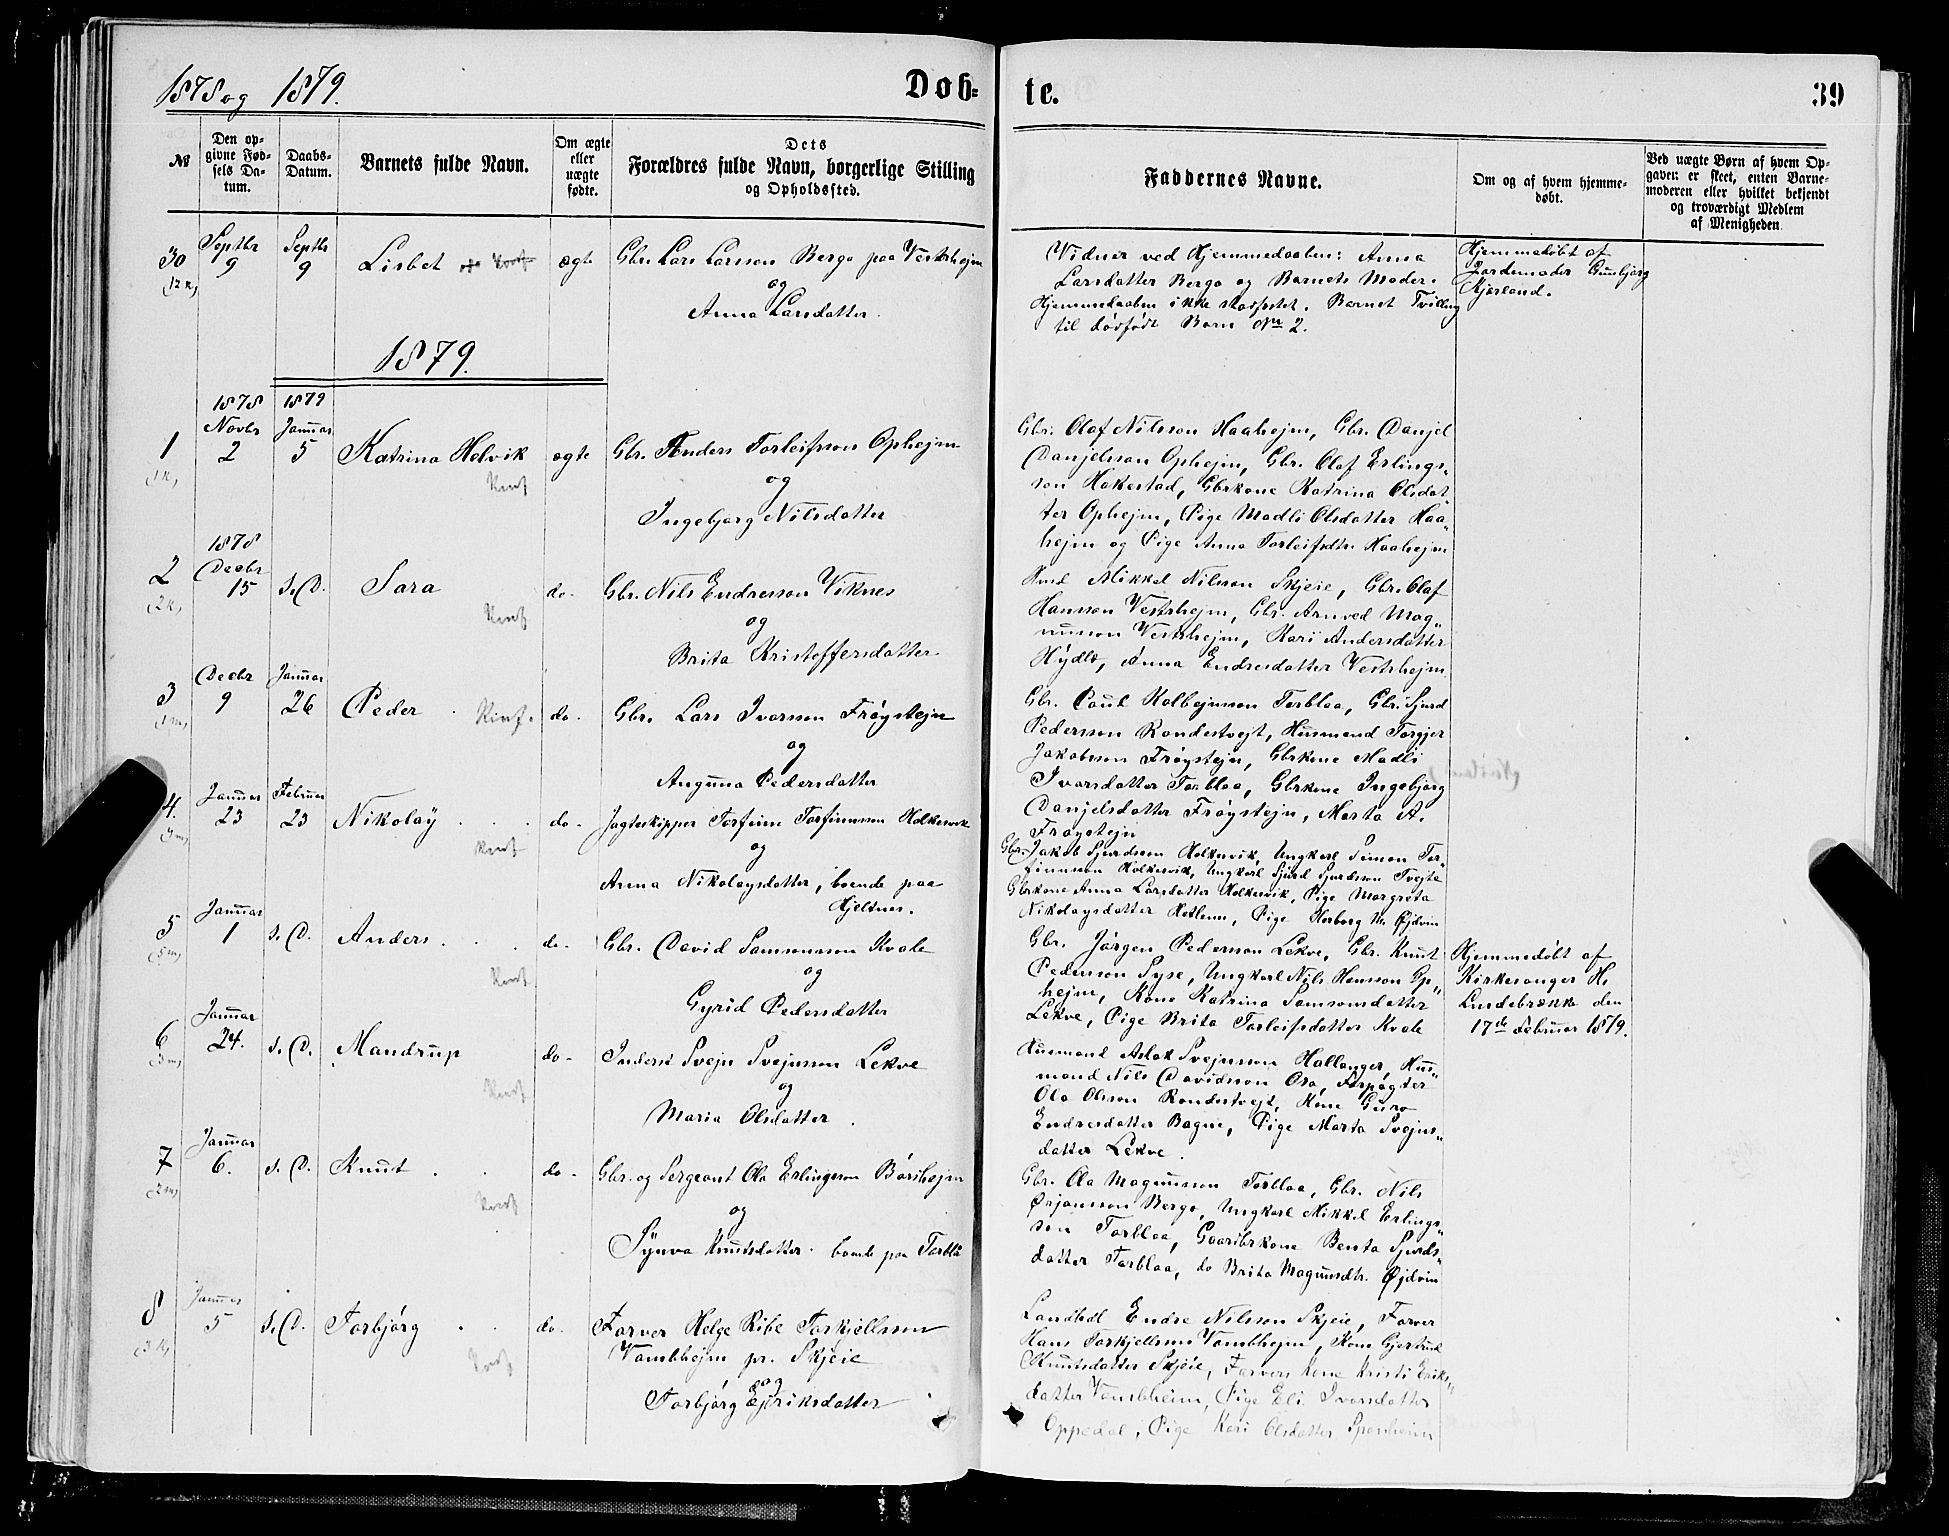 1878 og 1879.
Døb-
te.
39
№
Den op-
givne Fød-
sels Da-
tum.
Daabs-
Datum.
Barnets fulde Navn.
Om ægte
eller
uægte
fødte.
Dets
Forældres fulde Navn, borgerlige Stilling
og Opholdssted.
Faddernes Navne.
Om og af hvem hjemme-
døbt.
Ved uægte Børn af hvem Op-
gaven er skeet, enten Barne-
moderen eller hvilket bekjendt
og troværdigt Medlem
af Menigheden
30
(12 K)
Septbr
9
Septbr
9
Lisbet
ægte
Gbr. Lars Larsson Berge paa Vestrhejm
og
Anna Larsdatter.
Vidner ved Hjemmedaaben: Anna
Larsdatter Berge og Barnets Moder.
Hjemmedaaben ikke stadfæstet. Barnet Tvilling
til dødfødt Barn No 2.
Hjemmedøbt af
Jordemoder Gunbjørg
Kjærland.
1879.
1
(1 K)
1878
Novbr
2
1879
Januar
5
Katrina Helvik
ægte
Gbr. Anders Torleifsson Ophejm
og
Ingebjørg Nilsdatter
Gbr. Olaf Nilsson Haahejm, Gbr. Danjel
Danjelsson Ophejm, Gbr. Olaf Erlings-
son Hakestad, Gbrkone Katrina Olsdat-
ter Ophejm, Pige Madli Olsdatter Haa-
hejm og Pige Anna Torleifsdtr. Haahejm
2
(2 K)
1878
Decbr
15
s. D.
Sara
do-
Gbr. Nils Endresson Viknes
og
Brita Kristoffersdatter.
Mikkel Nilsson Skjeie, Gbr. Olaf
Hansson Vestrhejm, Gbr. Arnved Mag-
nusson Vestrhejm, Kari Andersdatter
Hydle, Anna Endresdatter Vestrhejm
3
(1 m)
Decbr
9
Januar
26
Peder
do-
Gbr. Lars Ivarsson Frøystejn
og
Angunna Pedersdatter
Gbr. Poul Kolbejnsson Torblaa, Gbr. Sjurd
Pedersson Rondestvejt, Husmand Torgjer
Jakobsson Frøystejn, Gbrkone Madli
Ivarsdatter Torblaa, Gbrkone Ingebjørg
Danjelsdatter Frøystejn, Marta A.
Frøystejn
4.
Januar
23
Februar
23
Nikolay
do-
Jagteskipper Torfinn Torfinnsson Holkesvik
og
Anna Nikolaysdatter, boende paa
Hjeltnes.
Gbr. Jakob Sjurdsson Holkesvik, Ungkarl Simon Tor-
finnsson Holkesvik, Ungkarl Sjurd Sjurdsson Tvejte
Gbrkone Anna Larsdatter Holkesvik, Pige Margreta
Nikolaysdatter Hetlenes, Pige Herborg M. Øjdvin
5
(5 m)
Januar
1
s. D.
Anders
do-
Gbr. David Samsonsson Kvale
og
Gyrid Pedersdatter
Gbr. Jørgen Pedersson Lekve, Gbr. Knut
Pedersson Syse, Ungkarl Nils Hansson Op-
hejm, Kone Katrina Samsonsdatter
Lekve, Pige Brita Torleifsdatter Kvale
Hjemmedøbt af
Kirkesanger H.
Lindebrække den
17de Februar 1879.
6
(3 m)
Januar
24.
s. D.
Mandrup
do-
Inderst Svejn Svejnsson Lekve
og
Maria Olsdatter.
Husmand Aslak Svejnsson Hallanger, Hus-
mand Nils Davidsson Osa, Forpagter
Ola Olsson Rondestvejt, Kone Guro
Endresdatter Bagne, Pige Marta Svejns-
datter Lekve.
7
(2 m)
Januar
6.
s. D.
Knut
do-
Gbr. og Sergeant Ola Erlingsson Børshejm
og
Synva Knutsdatter. boende paa Torblå
Gbr. Ola Magnusson Torblaa, Gbr. Nils
Ørjansson Berge, Ungkarl Mikkel Erlings-
son Torblaa, Gaardbrkone Benta Sjurds-
datter Torblaa, do Brita Magnusdtr. Øjdvin
8
(3 K)
Januar
5
s. D.
Torbjørg
do.
Farver Helge Ribe Torkjellsson
Vambhejm pr. Skjeie
og
Torbjørg Ejriksdatter
Landhdl Endre Nilsson Skjeie, Farver
Hans Torkjellsson Vambhejm, Kone Gjertrud
Knutsdatter Skjeie, Farvers Kone Kristi Eriks-
datter Vambheim, Pige Eli Ivarsdatter
Oppedal, Pige Kari Olsdatter Sponheim